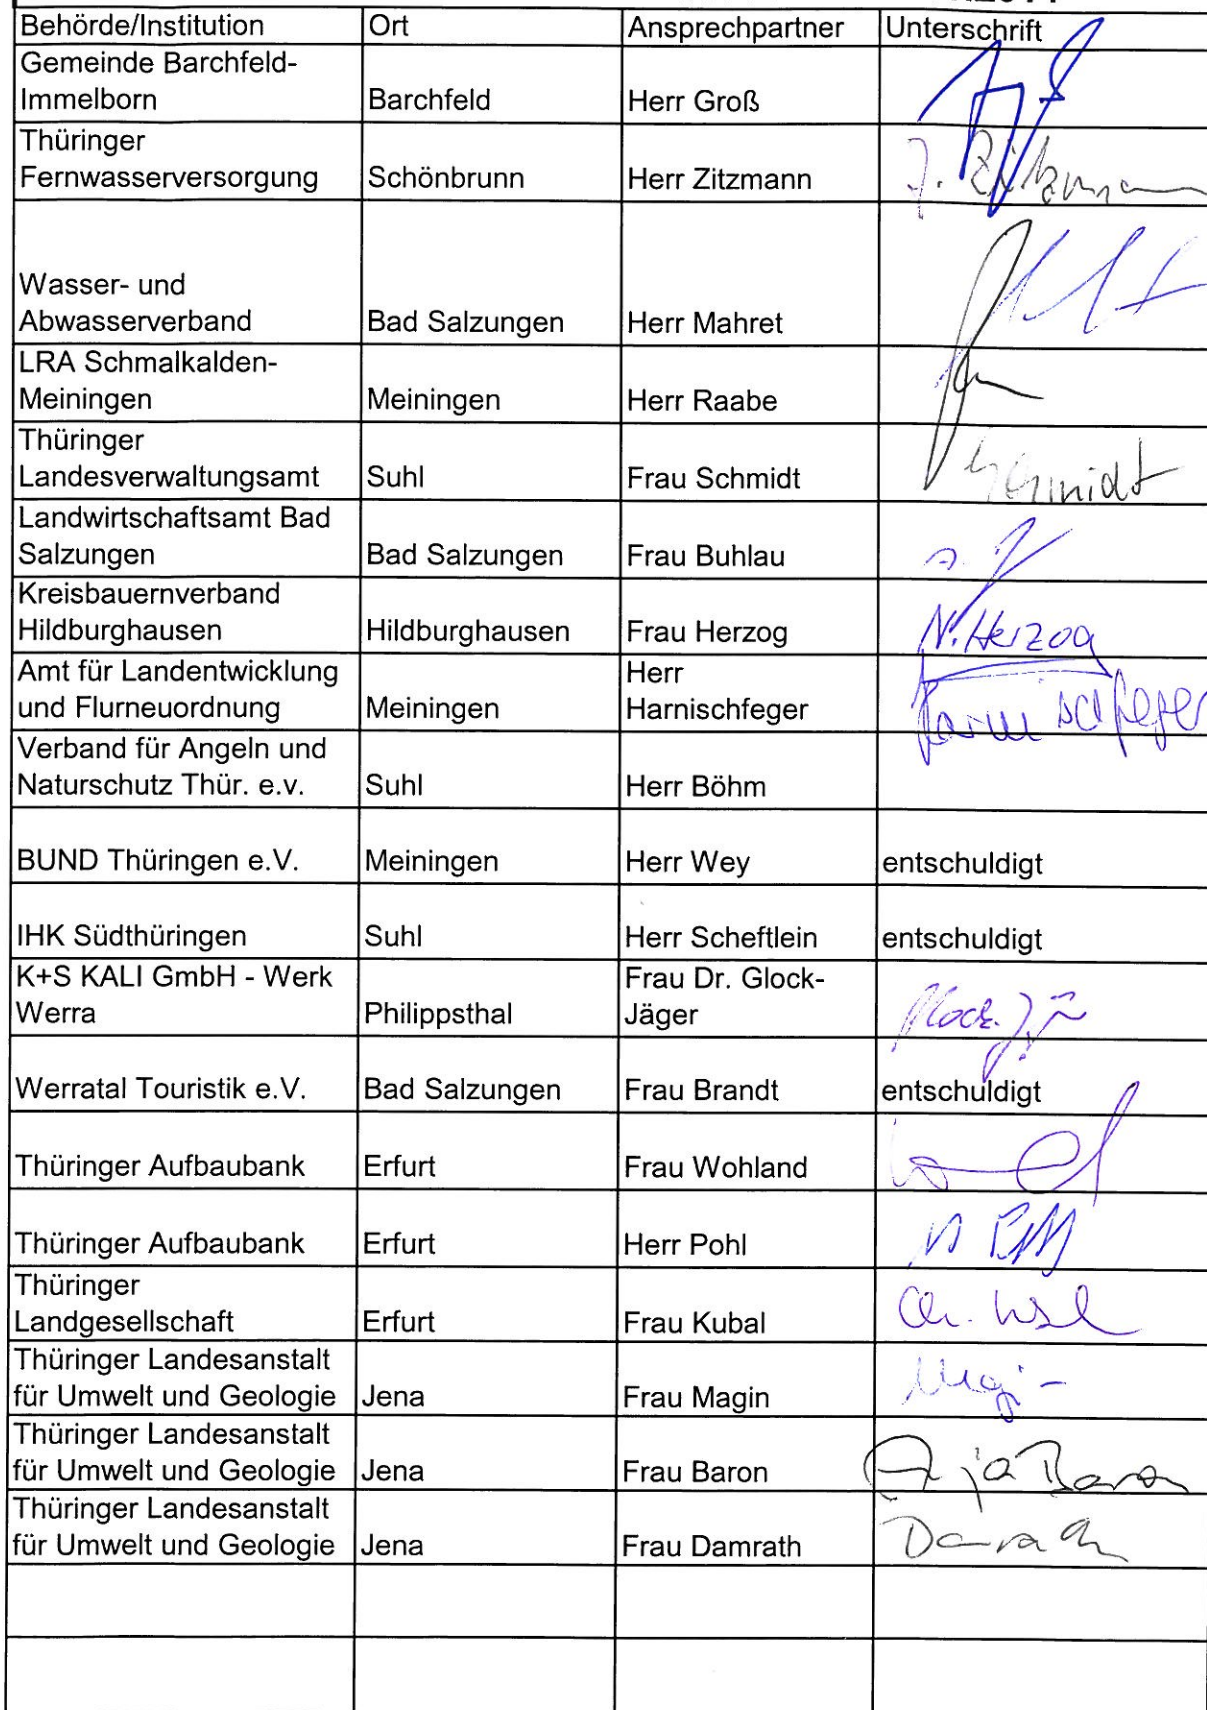 Behörde/Institution Ort Ansprechpartner Unterschrift
Gemeinde Barchfeld-
Immelborn Barchfeld Herr Groß
Thüringer
Fernwasserversorgung Schönbrunn Herr Zitzmann J. Zitzmann
Wasser- und
Abwasserverband Bad Salzungen Herr Mahret
LRA Schmalkalden-
Meiningen Meiningen Herr Raabe
Thüringer
Landesverwaltungsamt Suhl Frau Schmidt Schmidt
Landwirtschaftsamt Bad
Salzungen Bad Salzungen Frau Buhlau
Kreisbauernverband
Hildburghausen Hildburghausen Frau Herzog N. Herzog
Amt für Landentwicklung Herr
und Flurneuordnung Meiningen Harnischfeger Harnischfeger
Verband für Angeln und
Naturschutz Thür. e.v. Suhl Herr Böhm
BUND Thüringen e.V. Meiningen Herr Wey entschuldigt
IHK Südthüringen Suhl Herr Scheftlein entschuldigt
K+S KALI GmbH - Werk Frau Dr. Glock-
Werra Philippsthal Jäger
Werratal Touristik e.V. Bad Salzungen Frau Brandt entschuldigt
Thüringer Aufbaubank Erfurt Frau Wohland
Thüringer Aufbaubank Erfurt Herr Pohl
Thüringer
Landgesellschaft Erfurt Frau Kubal
Thüringer Landesanstalt
für Umwelt und Geologie Jena Frau Magin Magin
Thüringer Landesanstalt
für Umwelt und Geologie Jena Frau Baron Anja Baron
Thüringer Landesanstalt
für Umwelt und Geologie Jena Frau Damrath Damrath